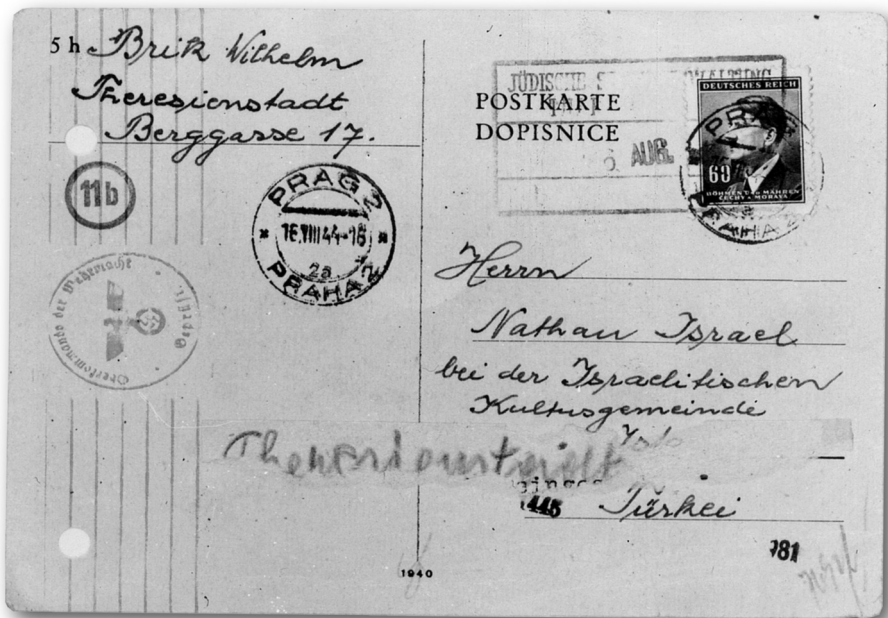 5 h Brik Wilhelm
Theresienstadt
Berggasse 17.
11b
PRAG 2
16.VIII 44-18
2a
PRAHA 2
Oberkommando der Wehrmacht
JÜDISCHE
AUG.
POSTKARTE
DOPISNICE
DEUTSCHES REICH
60
BÖHMEN UND MÄHREN
ČECHY A MORAVA
PRAG
PRAHA 2
Herrn
Nathan Israel
bei der Israelitischen
Kultusgemeinde
Theresienstadt
Türkei
1940